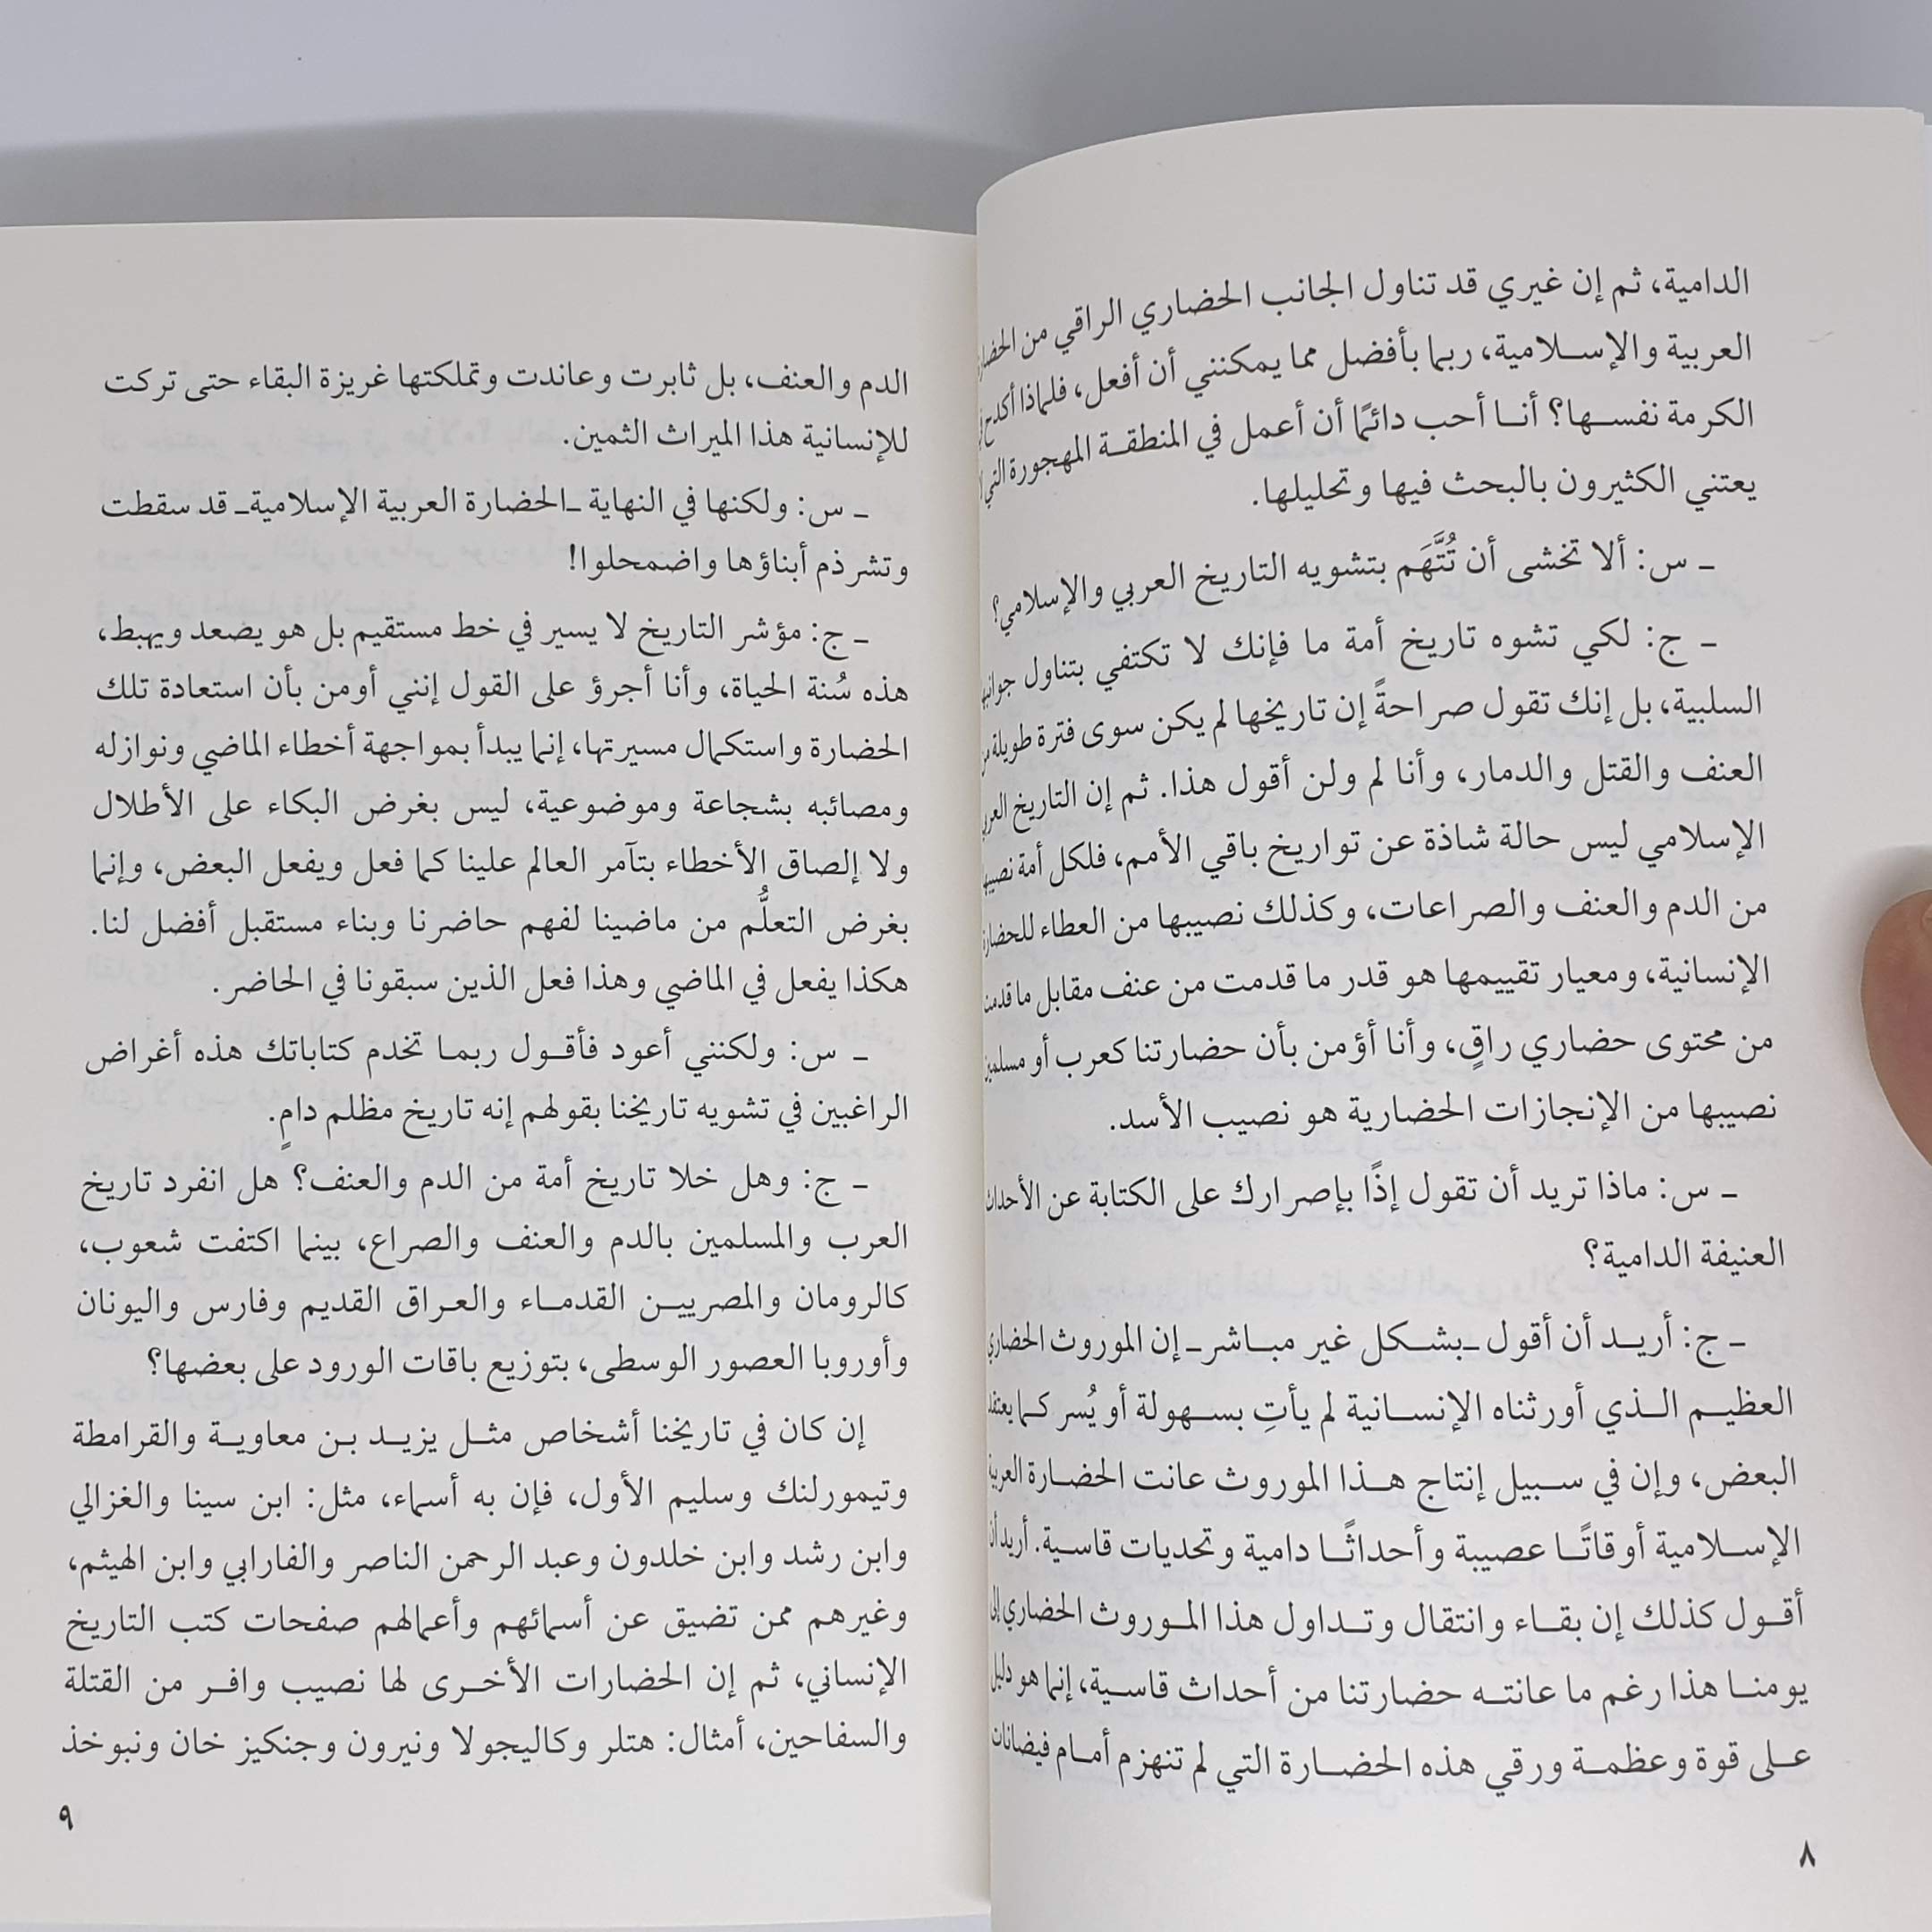 الدامية، ثم إن غيري قد تناول الجانب الحضاري الراقي من
العربية والإسلامية، ربما بأفضل مما يمكنني أن أفعل، فلماذا أكدح
الكرمة نفسها؟ أنا أحب دائمًا أن أعمل في المنطقة المهجورة التي
يعتني الكثيرون بالبحث فيها وتحليلها.
ـ س: ألا تخشى أن تُتَّهَم بتشويه التاريخ العربي والإسلامي؟
ـ ج: لكي تشوه تاريخ أمة ما فإنك لا تكتفي بتناول جوانبها
السلبية، بل إنك تقول صراحةً إن تاريخها لم يكن سوى فترة طويلة من
العنف والقتل والدمار، وأنا لم ولن أقول هذا. ثم إن التاريخ
الإسلامي ليس حالة شاذة عن تواريخ باقي الأمم، فلكل أمة نصيبها
من الدم والعنف والصراعات، وكذلك نصيبها من العطاء للحضارة
الإنسانية، ومعيار تقييمها هو قدر ما قدمت من عنف مقابل ما قدمت
من محتوى حضاري راقٍ، وأنا أؤمن بأن حضارتنا كعرب أو مسلمين
نصيبها من الإنجازات الحضارية هو نصيب الأسد.
ـ س: ماذا تريد أن تقول إذًا بإصرارك على الكتابة عن الأحداث
العنيفة الدامية؟
ـ ج: أريد أن أقول ـبشكل غير مباشرـ إن الموروث الحضاري
العظيم الذي أورثناه الإنسانية لم يأتِ بسهولة أو يُسر كما يعتقد
البعض، وإن في سبيل إنتاج هذا الموروث عانت الحضارة العربية
الإسلامية أوقاتًا عصيبة وأحداثًا دامية وتحديات قاسية. أريد أن
أقول كذلك إن بقاء وانتقال وتداول هذا الموروث الحضاري إلى
يومنا هذا رغم ما عانته حضارتنا من أحداث قاسية، إنما هو دليل
على قوة وعظمة ورقي هذه الحضارة التي لم تنهزم أمام فيضانات
٨
الدم والعنف، بل ثابرت وعاندت وتملكتها غريزة البقاء حتى تركت
للإنسانية هذا الميراث الثمين.
ـ س: ولكنها في النهاية ـالحضارة العربية الإسلاميةـ قد سقطت
وتشرذم أبناؤها واضمحلوا!
ـ ج: مؤشر التاريخ لا يسير في خط مستقيم بل هو يصعد ويهبط،
هذه سُنة الحياة، وأنا أجرؤ على القول إنني أومن بأن استعادة تلك
الحضارة واستكمال مسيرتها، إنما يبدأ بمواجهة أخطاء الماضي ونوازله
ومصائبه بشجاعة وموضوعية، ليس بغرض البكاء على الأطلال
ولا إلصاق الأخطاء بتآمر العالم علينا كما فعل ويفعل البعض، وإنما
بغرض التعلُّم من ماضينا لفهم حاضرنا وبناء مستقبل أفضل لنا.
هكذا يفعل في الماضي وهذا فعل الذين سبقونا في الحاضر.
ـ س: ولكنني أعود فأقول ربما تخدم كتاباتك هذه أغراض
الراغبين في تشويه تاريخنا بقولهم إنه تاريخ مظلم دامٍ.
ـ ج: وهل خلا تاريخ أمة من الدم والعنف؟ هل انفرد تاريخ
العرب والمسلمين بالدم والعنف والصراع، بينما اكتفت شعوب،
كالرومان والمصريين القدماء والعراق القديم وفارس واليونان
وأوروبا العصور الوسطى، بتوزيع باقات الورود على بعضها؟
إن كان في تاريخنا أشخاص مثل يزيد بن معاوية والقرامطة
وتيمورلنك وسليم الأول، فإن به أسماء، مثل: ابن سينا والغزالي
وابن رشد وابن خلدون وعبد الرحمن الناصر والفارابي وابن الهيثم،
وغيرهم ممن تضيق عن أسمائهم وأعمالهم صفحات كتب التاريخ
الإنساني، ثم إن الحضارات الأخرى لها نصيب وافر من القتلة
والسفاحين، أمثال: هتلر وكاليجولا ونيرون وجنكيز خان ونبوخذ
٩